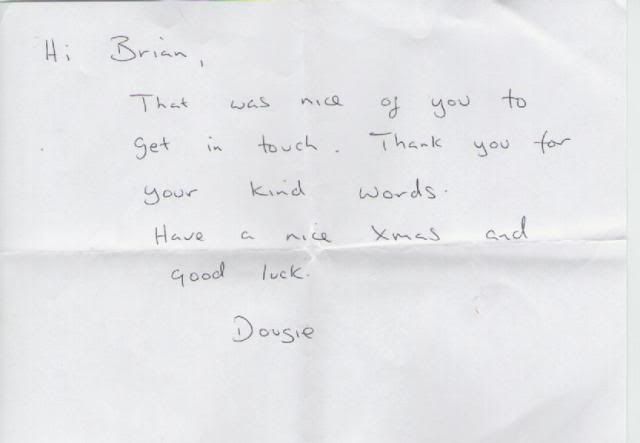 Hi Brian,
That was nice of you to
get in touch. Thank you for
your kind words.
Have a nice Xmas and
good luck.
Dougie